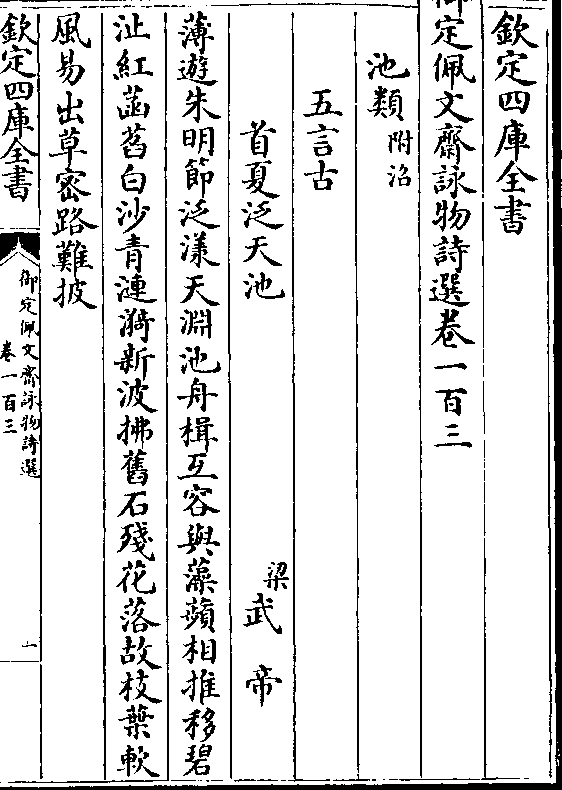 欽定四庫全書
御定佩文齋詠物詩選卷一百三
池類附沼
五言古
首夏泛天池　梁武帝
薄遊朱明節泛漾天淵池舟楫互容與藻蘋相推移碧
沚紅菡萏白沙青漣漪新波拂舊石殘花落故枝葉軟
風易出草密路難披
欽定四庫全書
御定佩文齋詠物詩選
卷一百三
一